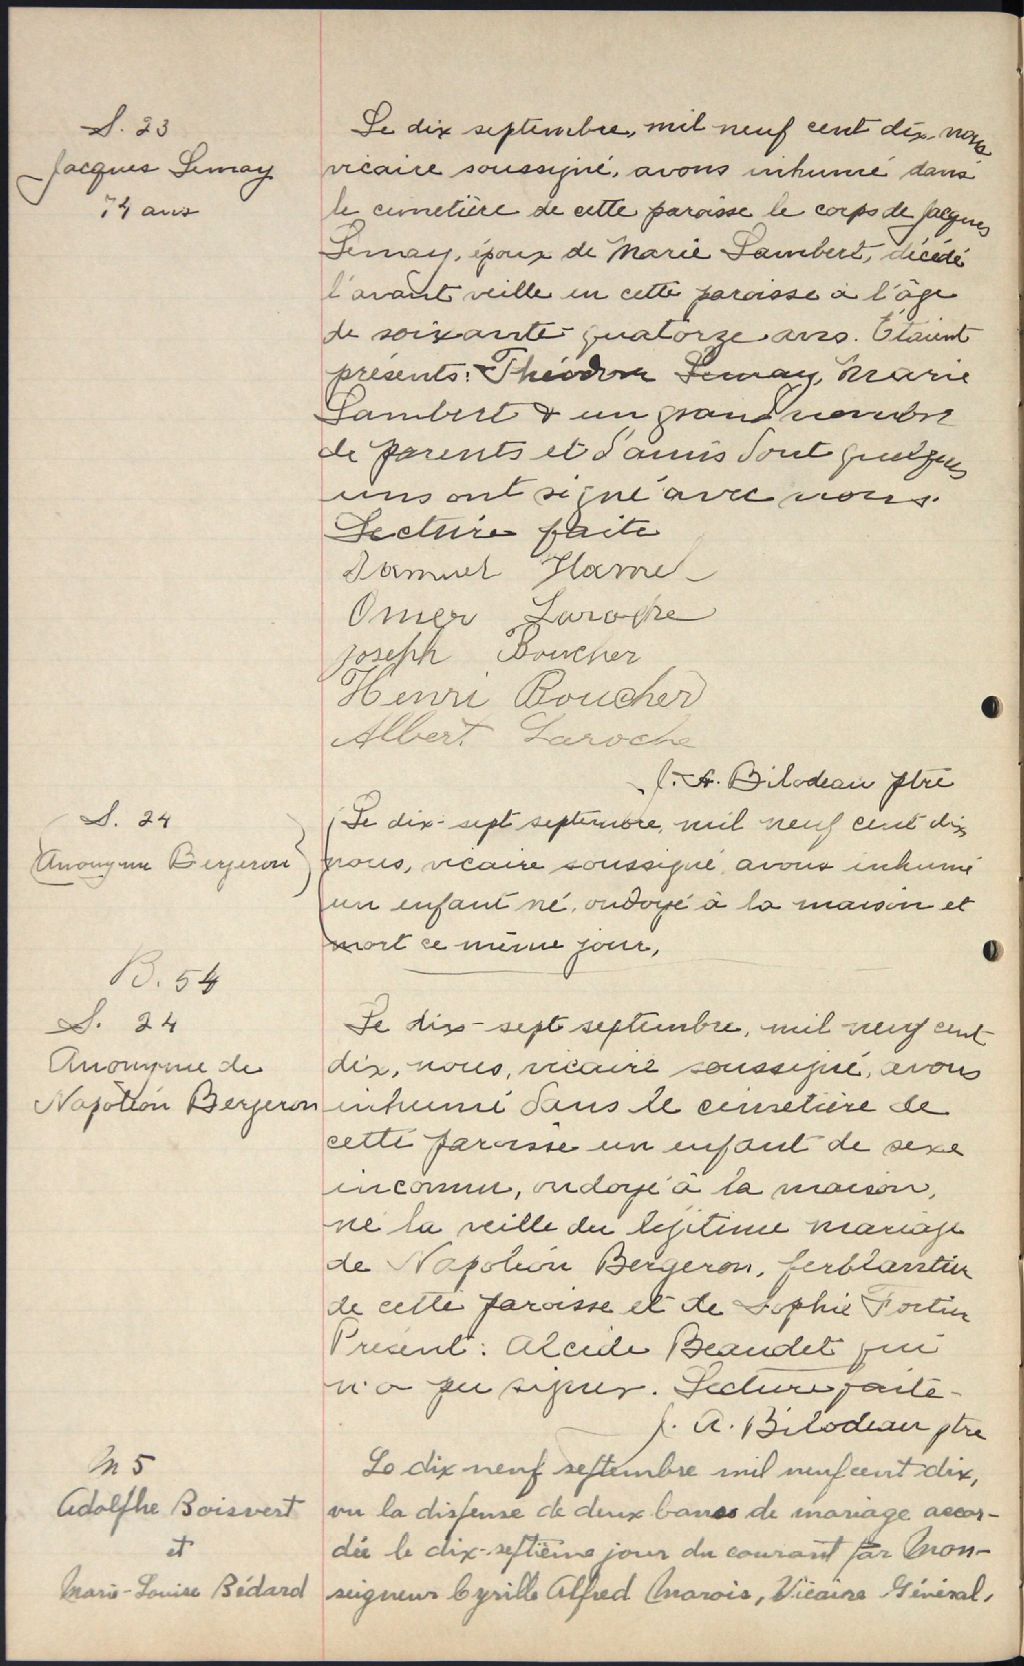 S. 23
Jacques Lemay
74 ans
Le dix septembre, mil neuf cent dix, nous
vicaire soussigné, avons inhumé dans
le cimetière de cette paroisse le corps de Jacques
Lemay, époux de Marie Lambert, décédé
l'avant veille en cette paroisse à l'âge
de soixante-quatorze ans. Étaient
présents: Théodore Lemay, Marie
Lambert & un grand nombre
de parents et d'amis dont quelques
uns ont signé avec nous.
Lecture faite
Samuel Hamel
Omer Laroche
Joseph Boucher
Henri Boucher
Albert Laroche
J. A. Bilodeau ptre
S. 24
Anonyme Bergeron
Le dix-sept septembre, mil neuf cent dix
nous, vicaire soussigné avons inhumé
un enfant né, ondoyé à la maison et
mort ce même jour,
B. 54
S. 24
Anonyme de
Napoléon Bergeron
Le dix-sept septembre, mil neuf cent
dix, nous, vicaire soussigné, avons
inhumé dans le cimetière de
cette paroisse un enfant de sexe
inconnu, ondoyé à la maison,
né la veille du légitime mariage
de Napoléon Bergeron, ferblantier
de cette paroisse et de Sophie Fortier
Présent: Alcide Beaudet qui
n'a pu signer. Lecture faite-
J. A. Bilodeau ptre
M 5
Adolphe Boisvert
et
Marie-Louise Bédard
Le dix-neuf septembre mil neuf cent dix,
vu la dispense de deux bancs de mariage accor-
dée le dix-septième jour du courant par Mon-
seigneur Cyrille Alfred Marois, Vicaire Général,